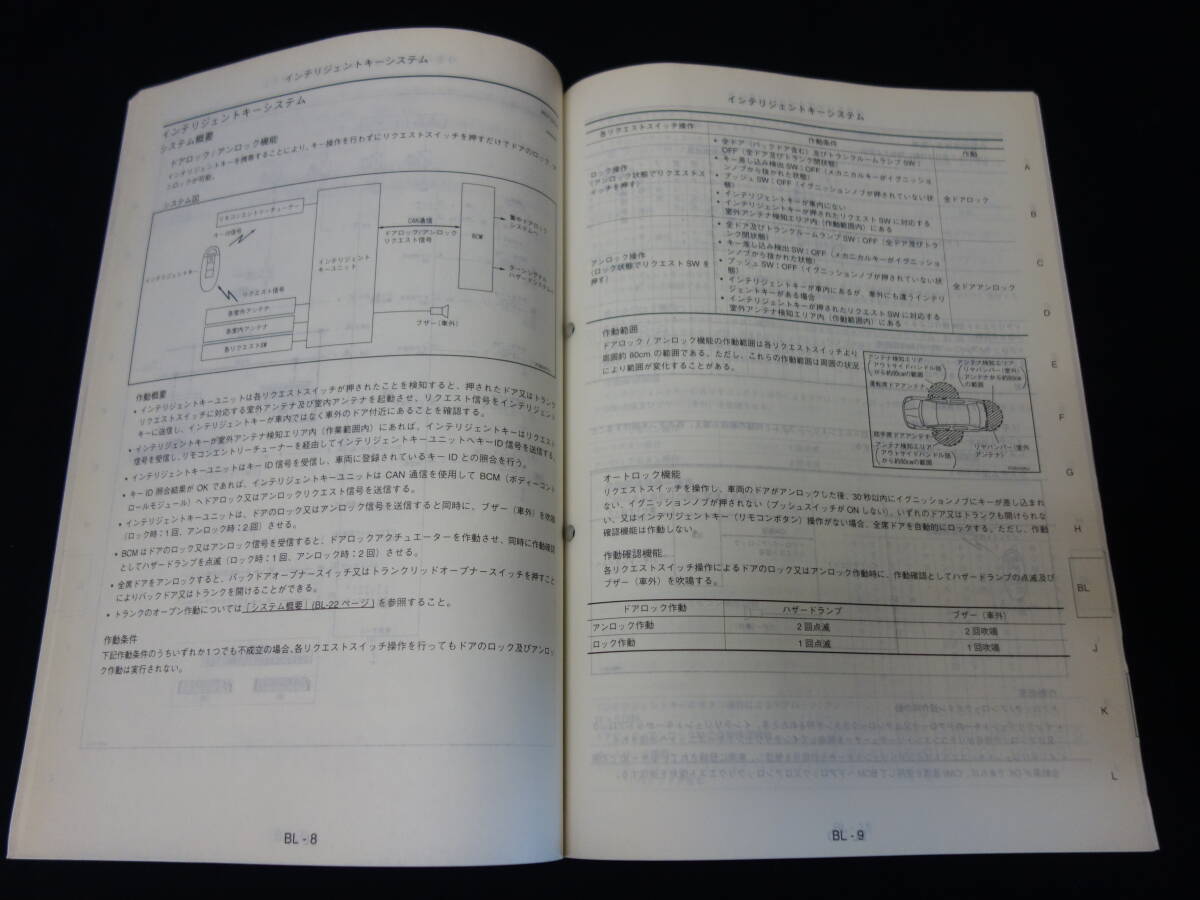 インテリジェントキーシステム
インテリジェントキーシステム
システム概要
ドアロック/アンロック機能
インテリジェントキーを携帯することにより、キー操作を行わずにリクエストスイッチを押すだけでドアのロック
システム図
リモコンエントリーチューナー
キーID信号
インテリジェントキー
リクエスト信号
各室外アンテナ
各室内アンテナ
各リクエストSW
インテリジェント
キーユニット
CAN通信
ドアロック/アンロック
リクエスト信号
BCM
集中ドアロック
システムへ
ターンシグナル
ハザードシステムへ
ブザー（車外）
作動概要
• インテリジェントキーユニットは各リクエストスイッチが押されたことを検知すると、押されたドア又はトランク
リクエストスイッチに対応する室外アンテナ及び室内アンテナを起動させ、リクエスト信号をインテリジェント
キーに送信し、インテリジェントキーが車内ではなく車外のドア付近にあることを確認する。
• インテリジェントキーが室外アンテナ検知エリア内（作業範囲内）にあれば、インテリジェントキーはリクエスト
信号を受信し、リモコンエントリーチューナーを経由してインテリジェントキーユニットへキーID信号を送信する。
• インテリジェントキーユニットはキーID信号を受信し、車両に登録されているキーIDとの照合を行う。
• キーID照合結果がOKであれば、インテリジェントキーユニットは CAN 通信を使用して BCM（ボディーコント
ロールモジュール）へドアロック又はアンロックリクエスト信号を送信する。
• インテリジェントキーユニットは、ドアのロック又はアンロック信号を送信すると同時に、ブザー（車外）を吹鳴
（ロック時：1回、アンロック時：2回）させる。
• BCMはドアのロック又はアンロック信号を受信すると、ドアロックアクチュエーターを作動させ、同時に作動確認
としてハザードランプを点滅（ロック時：1回、アンロック時：2回）させる。
• 全席ドアをアンロックすると、バックドアオープナースイッチ又はトランクリッドオープナースイッチを押すこと
によりバックドア又はトランクを開けることができる。
• トランクのオープン作動については「システム概要」(BL-22 ページ) を参照すること。
作動条件
下記作動条件のうちいずれか1つでも不成立の場合、各リクエストスイッチ操作を行ってもドアのロック及びアンロッ
ク作動は実行されない。
BL - 8
インテリジェントキーシステム
各リクエストスイッチ操作 作動条件 作動
ロック操作
（アンロック状態でリクエストス
イッチを押す）
• 全ドア（バックドア含む）及びトランクルームランプ SW：
OFF（全ドア及びトランク閉状態）
• キー差し込み検出SW：OFF（メカニカルキーがイグニッショ
ンノブから抜かれた状態）
• プッシュSW：OFF（イグニッションノブが押されていない状
態）
• インテリジェントキーが車内にない
• インテリジェントキーが押されたリクエスト SW に対応する
室外アンテナ検知エリア内（作動範囲内）にある
全ドアロック
アンロック操作
（ロック状態でリクエスト SW を
押す）
• 全ドア及びトランクルームランプSW：OFF（全ドア及びトラ
ンク閉状態）
• キー差し込み検出SW：OFF（メカニカルキーがイグニッショ
ンノブから抜かれた状態）
• プッシュSW：OFF（イグニッションノブが押されていない状
態）
• インテリジェントキーが車内にあるが、車外にも違うインテリ
ジェントキーがある場合
• インテリジェントキーが押されたリクエストSWに対応する
室外アンテナ検知エリア内（作動範囲内）にある
全ドアアンロック
作動範囲
ドアロック / アンロック機能の作動範囲は各リクエストスイッチより
周囲約 80cm の範囲である。ただし、これらの作動範囲は周囲の状況
により範囲が変化することがある。
アンテナ検知エリア
アウトサイドハンドル部
から約80cmの範囲
アンテナ検知エリア
リヤバンパー（室外）
アンテナから約80cm
の範囲
運転席ドアアンテナ
助手席ドアアンテナ
アンテナ検知エリア
アウトサイドハンドル部
から約80cmの範囲
リヤバンパー（室外
アンテナ）
オートロック機能
リクエストスイッチを操作し、車両のドアがアンロックした後、30秒以内にイグニッションノブにキーが差し込まれ
ない、イグニッションノブが押されない（プッシュスイッチがONしない）、いずれのドア又はトランクも開けられな
い、又はインテリジェントキー（リモコンボタン）操作がない場合、全席ドアを自動的にロックする。ただし、作動
確認機能は作動しない。
作動確認機能
各リクエストスイッチ操作によるドアのロック又はアンロック作動時に、作動確認としてハザードランプの点滅及び
ブザー（車外）を吹鳴する。
ドアロック作動 ハザードランプ ブザー（車外）
アンロック作動 2回点滅 2回吹鳴
ロック作動 1回点滅 1回吹鳴
A
B
C
D
E
F
G
H
BL
J
K
L
BL - 9